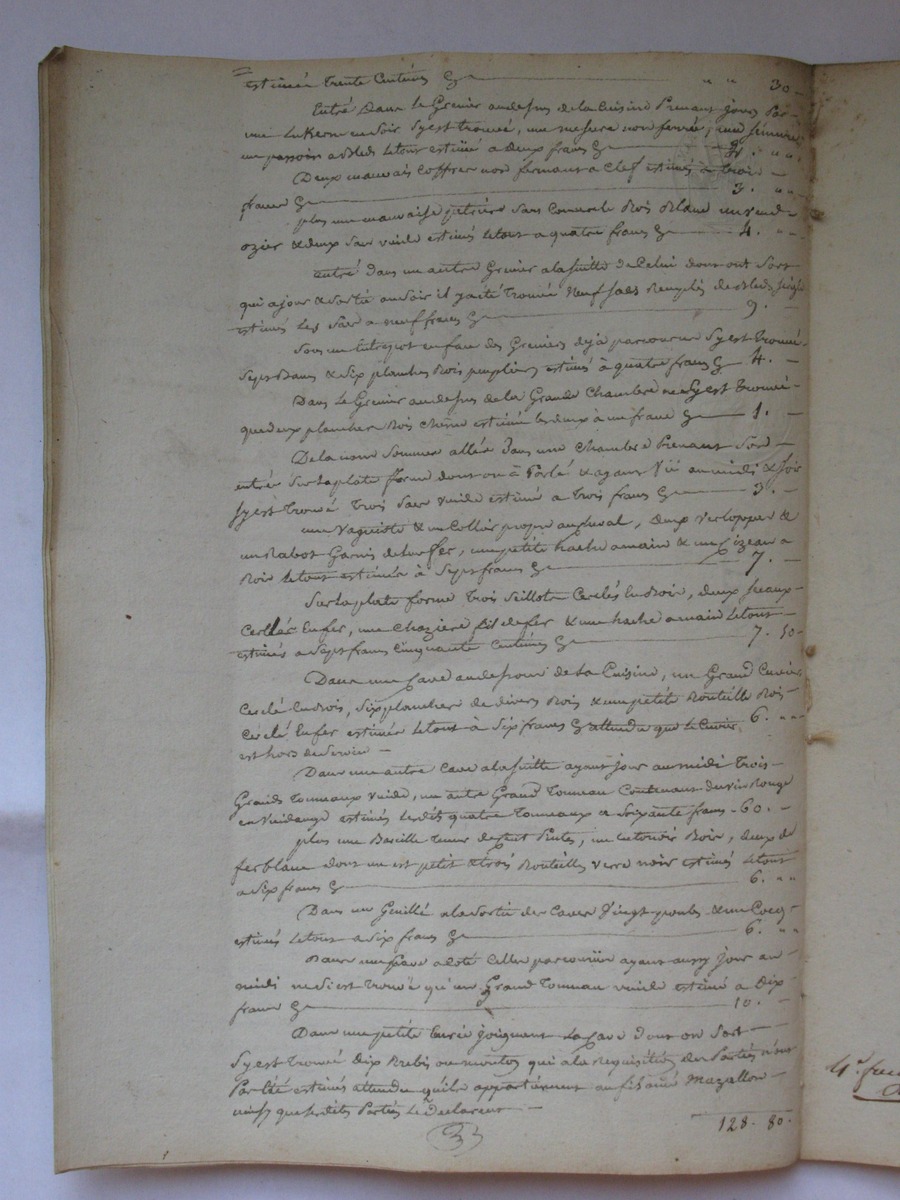 estimée trente Centimes " " 30
Entré Dans le Grenier audessus de la Cuisine Prenant jour Par
une au Soir, sy est trouvé, une mesure non ferrée, une
un passoir a Bled, le tout estimé a deux francs 2. " "
Deux mauvais Coffres non fermant a Clef estimés à trois
francs 3. " "
plus une mauvaise petrière sans Couvercle Bois Blanc un
ozier & deux Sacs vuide estimés le tout a quatre francs 4. " "
entré dans un autre Grenier a la suitte de Celui dont ont Sort
qui a jour & Sortie au Soir il ya été trouvé Neuf Sacs Remplis de Bled Seigle
estimés les Sacs a neuf francs 9. -
Sous un Entrepot en face des Greniers dejà parcourus Sy est trouvé
Sept Bancs & Six planches Bois peuplier estimés à quatre francs 4. -
Dans le Grenier audessus de la Grande Chambre ne Sy est trouvé
que deux planches Bois chene estimé les deux à un franc 1. -
De la nous Sommes allés dans une Chambre Prenant Son
entrée Sur la plate forme dont on à Parlé & ayant Vüe au midi & Soir
Sy est trouvé trois Sacs vuide estimé a trois francs 3. -
une & un Collier propre au cheval, deux Verloppes &
un Rabot Garnis de leur fer, une petite hache a main & un Cizeau a
Bois le tout estimés à Sept francs 7. -
Sur la plate forme trois Seillots Cerclés en Bois, deux Seaux
Cerclés en fer, une Chaziere fil de fer & une hache a main le tout
estimés a Sept francs Cinquante Centimes 7. 50
Dans une Cave audessous de la Cuisine, un Grand Cuvier
Cerclé en Bois, Six planches de divers Bois & une petite Bouteille Bois
Cerclé en fer estimés le tout à Six francs attendu que le Cuvier 6. " "
est hors de Service -
Dans une autre Cave a la suitte ayant jour au midi trois
Grands tonneaux vuide, un autre Grand Tonneau Contenant du vin Rouge
en vuidange estimés les dits quatre Tonneaux a Soixante francs - 60. -
plus une Barille tenue de huit Pintes, un entonoir Bois, deux de
fer blanc dont un est petit & trois Bouteilles verre noir estimés le tout
a Six francs 6. " "
Dans un a la Sortie des Caves Vingt poules & un Cocq
estimés le tout a Six francs 6. " "
Dans une Cave a coté Celles parcourüe ayant aussy jour au
midi ne Si est trouvé qu'un Grand Tonneau vuide estimé a Dix
francs 10. -
Dans une petite Ecurie joignant la Cave d'ou on Sort
Sy est trouvé dix Brebis ou moutons qui a la Requisition des Parties n'ont
Pas été estimés attendu qu'ils appartiennent au fils ainé Mazallon
ainsy que lesdits Parties Le Declarent -
128. 80.